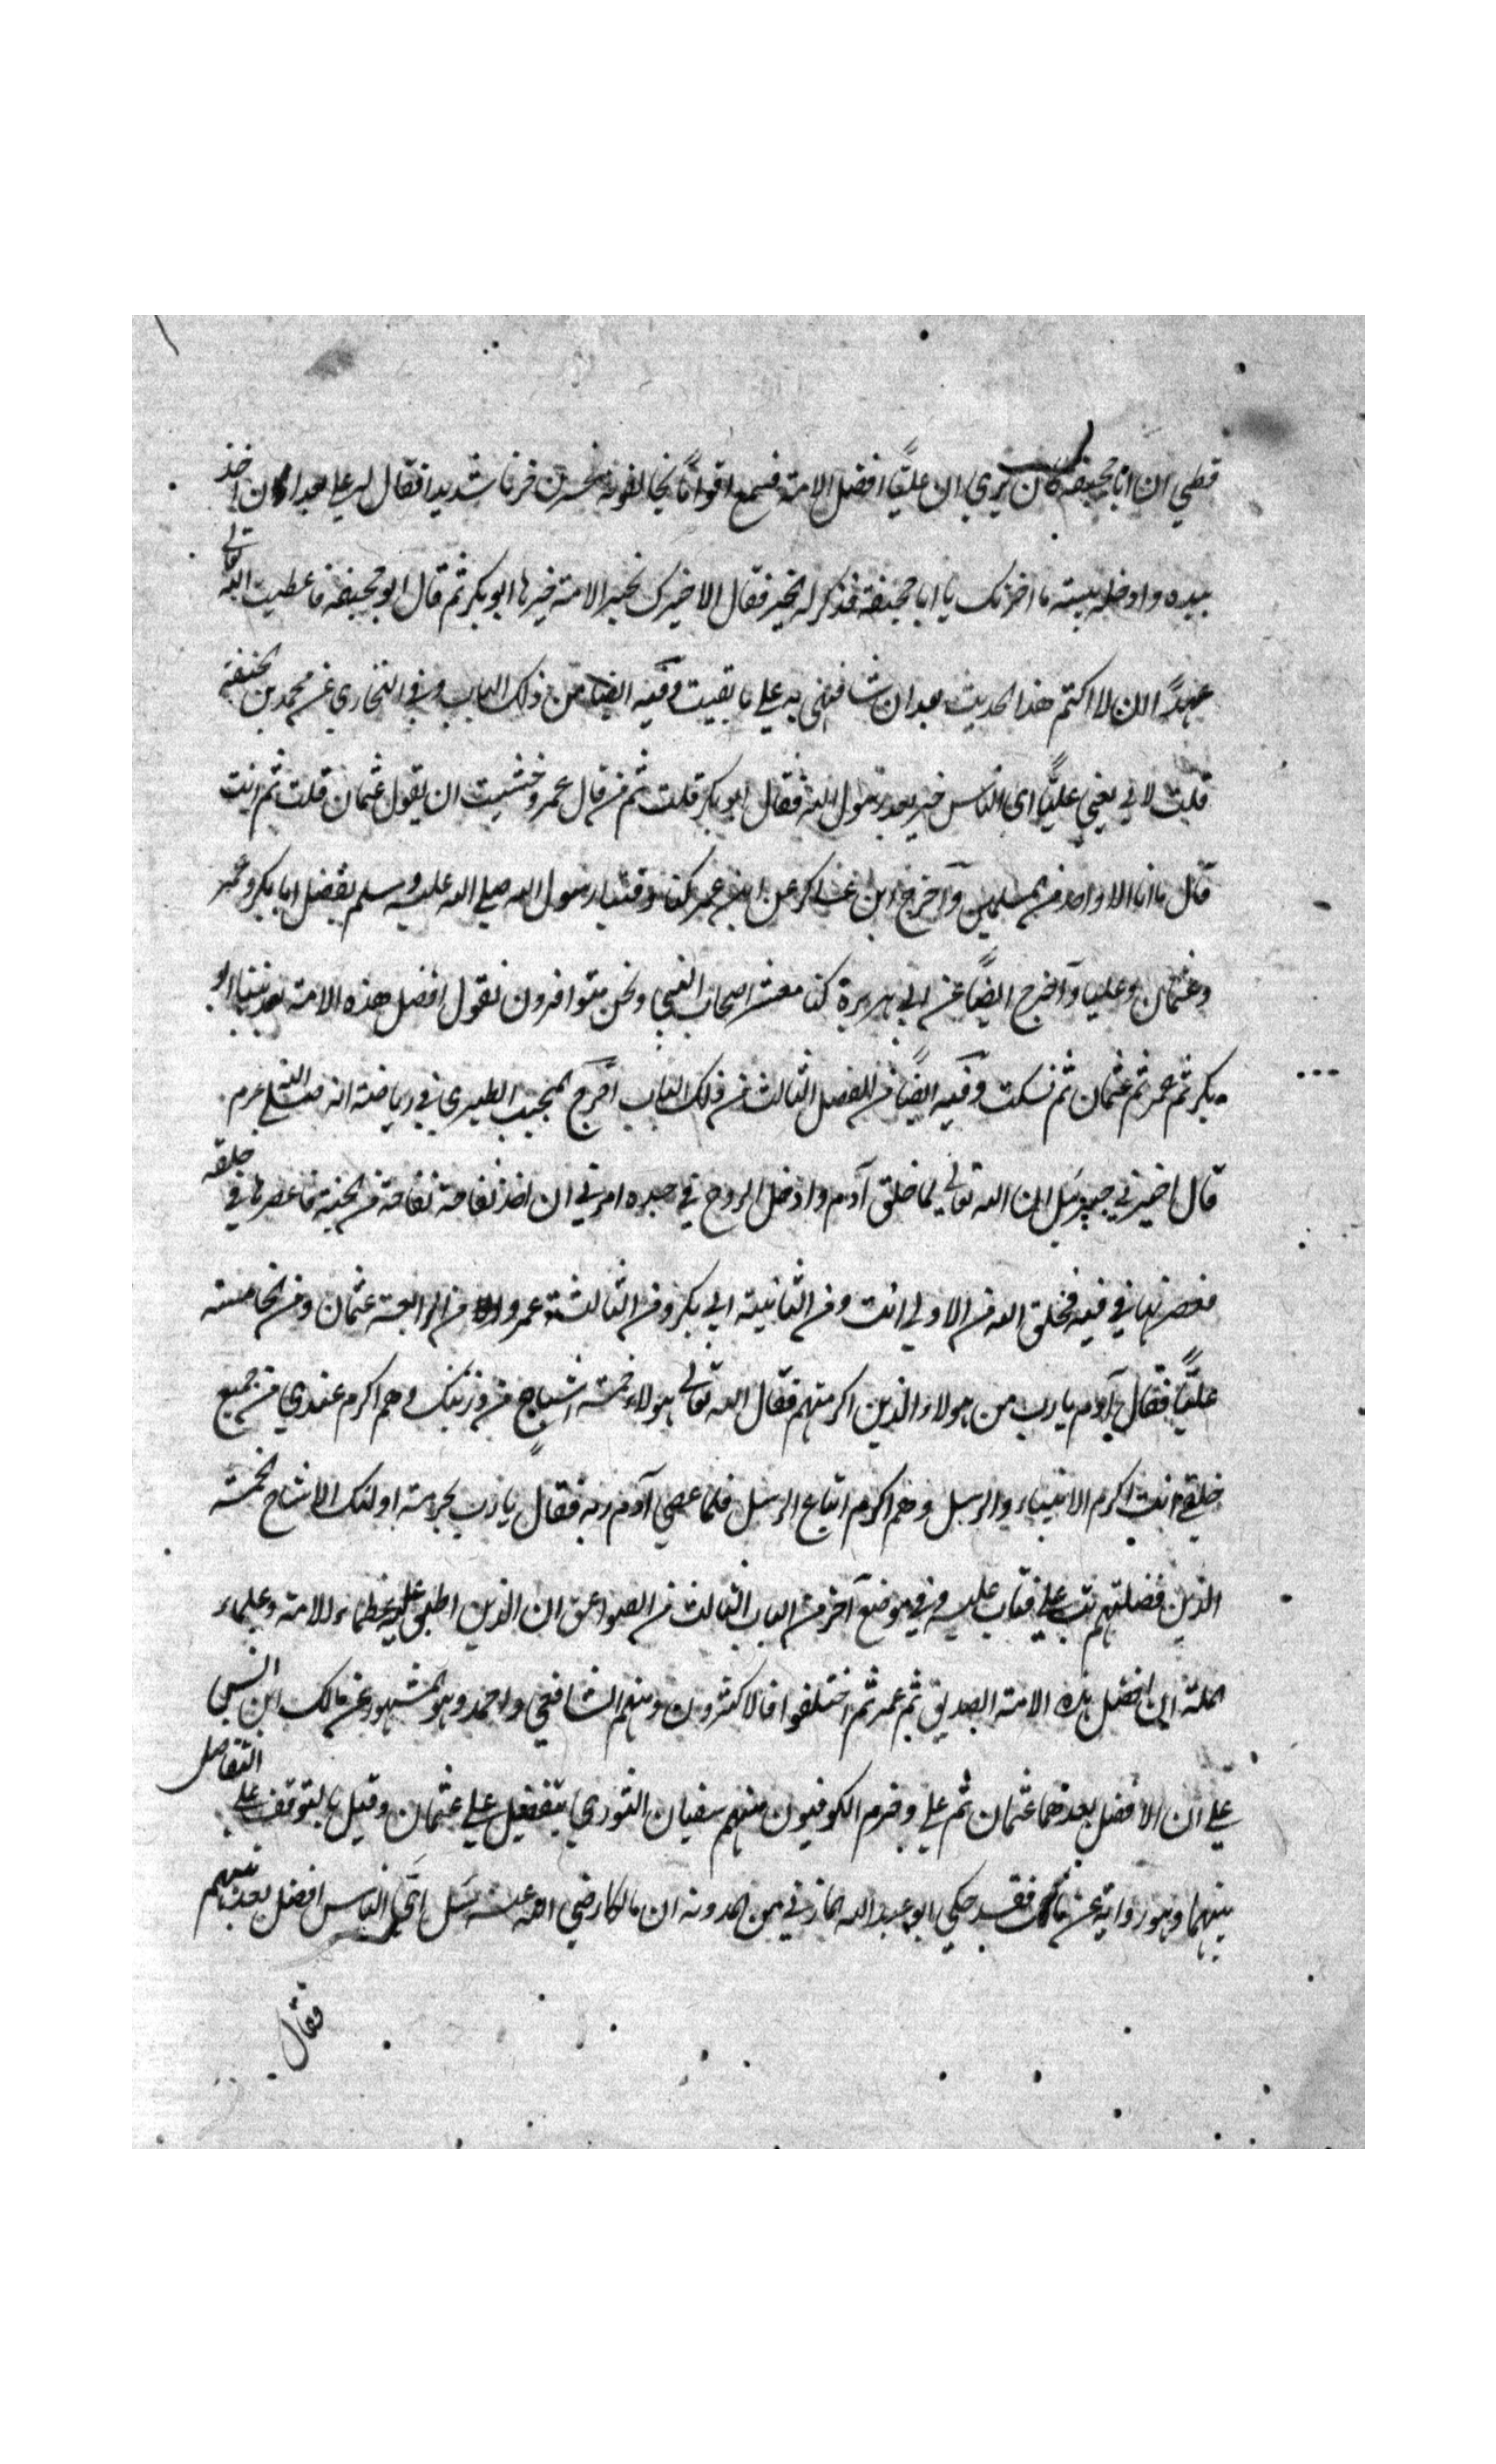 قطني ان ابا جحيفة كان يرى ان عليًا افضل الامة فسمع اقوامًا يخالفونه فحزن حزنا شديدا فقال له علي بعد ان اخذ
بيده وادخله بيته ما احزنك يا ابا جحيفة فذكر له الخبر فقال الا اخبرك بخير الامة خيرها ابو بكر ثم قال ابو جحيفة فاعطيت الله تعالى
عهدًا ان لا اكتم هذا الحديث بعد ان شافهني به علي ما بقيت وفيه ايضا من ذلك الباب وفي البخاري عن محمد بن الحنفية
قلت لابي يعني عليًا اي الناس خير بعد رسول الله فقال ابو بكر قلت ثم من قال عمر وخشيت ان يقول عثمان قلت ثم انت
قال ما انا الا واحد من المسلمين وآخرج ابن عساكر عن ابن عمر كنا وفينا رسول الله صلى الله عليه وسلم يفضل ابا بكر وعمر
وعثمان وعليا وآخرج ايضًا عن ابي هريرة كنا معشر اصحاب النبي ونحن متوافرون نقول افضل هذه الامة بعد نبينا ابو
بكر ثم عمر ثم عثمان ثم نسكت وفيه ايضًا من الفصل الثالث من ذلك الباب اخرج المحب الطبري في رياضه انه
قال اخبرني جبرئيل ان الله تعالى لما خلق آدم وادخل الروح في جسده امرني ان اخذ تفاحة من الجنة فاعصرها في حلقه
فعصرتها في فيه فخلق الله من الاولى انت ومن الثانية ابي بكر ومن الثالثة عمر و من الرابعة عثمان ومن الخامسة
عليًا فقال آدم يا رب من هولاء الذين اكرمتهم فقال الله تعالى هولاء خمسة اشباح من ذريتك وهم اكرم عندي من جميع
خلقي انت اكرم الانبياء والرسل وهم اكرم اتباع الرسل فلما عصى آدم ربه فقال يا رب بحرمة اولئك الاشباح الخمسة
الذين فضلتهم تب علي فتاب عليه وفي موضع آخر من الباب الثالث من الصواعق ان الذين اطبق عليه عظماء الامة وعلماء
الملة ان افضل هذه الامة الصديق ثم عمر ثم اختلفوا فالاكثرون ومنهم الشافعي واحمد وهو المشهور عن مالك ابن انس
على ان الافضل بعدهما عثمان ثم علي وجزم الكوفيون منهم سفيان الثوري بتفضيل علي على عثمان وقيل بالتوقف على التفاضل
بينهما وهو رواية عن مالك فقد حكى ابو عبد الله المازني من المدونة ان مالكا رضي الله عنه سئل اي الناس افضل بعد نبيهم
فقال